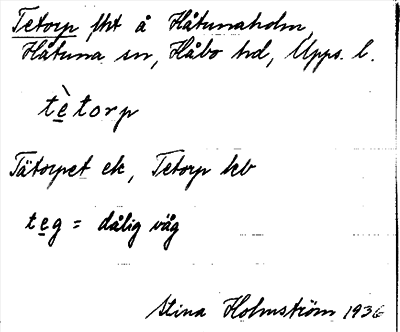 Tetorp fht å Håtunaholm,
Håtuna sn, Håbo hd, Upps. l.
tètorp
Tätorpet ek, Tetorp kb
teg = dålig väg
Stina Holmström 1936